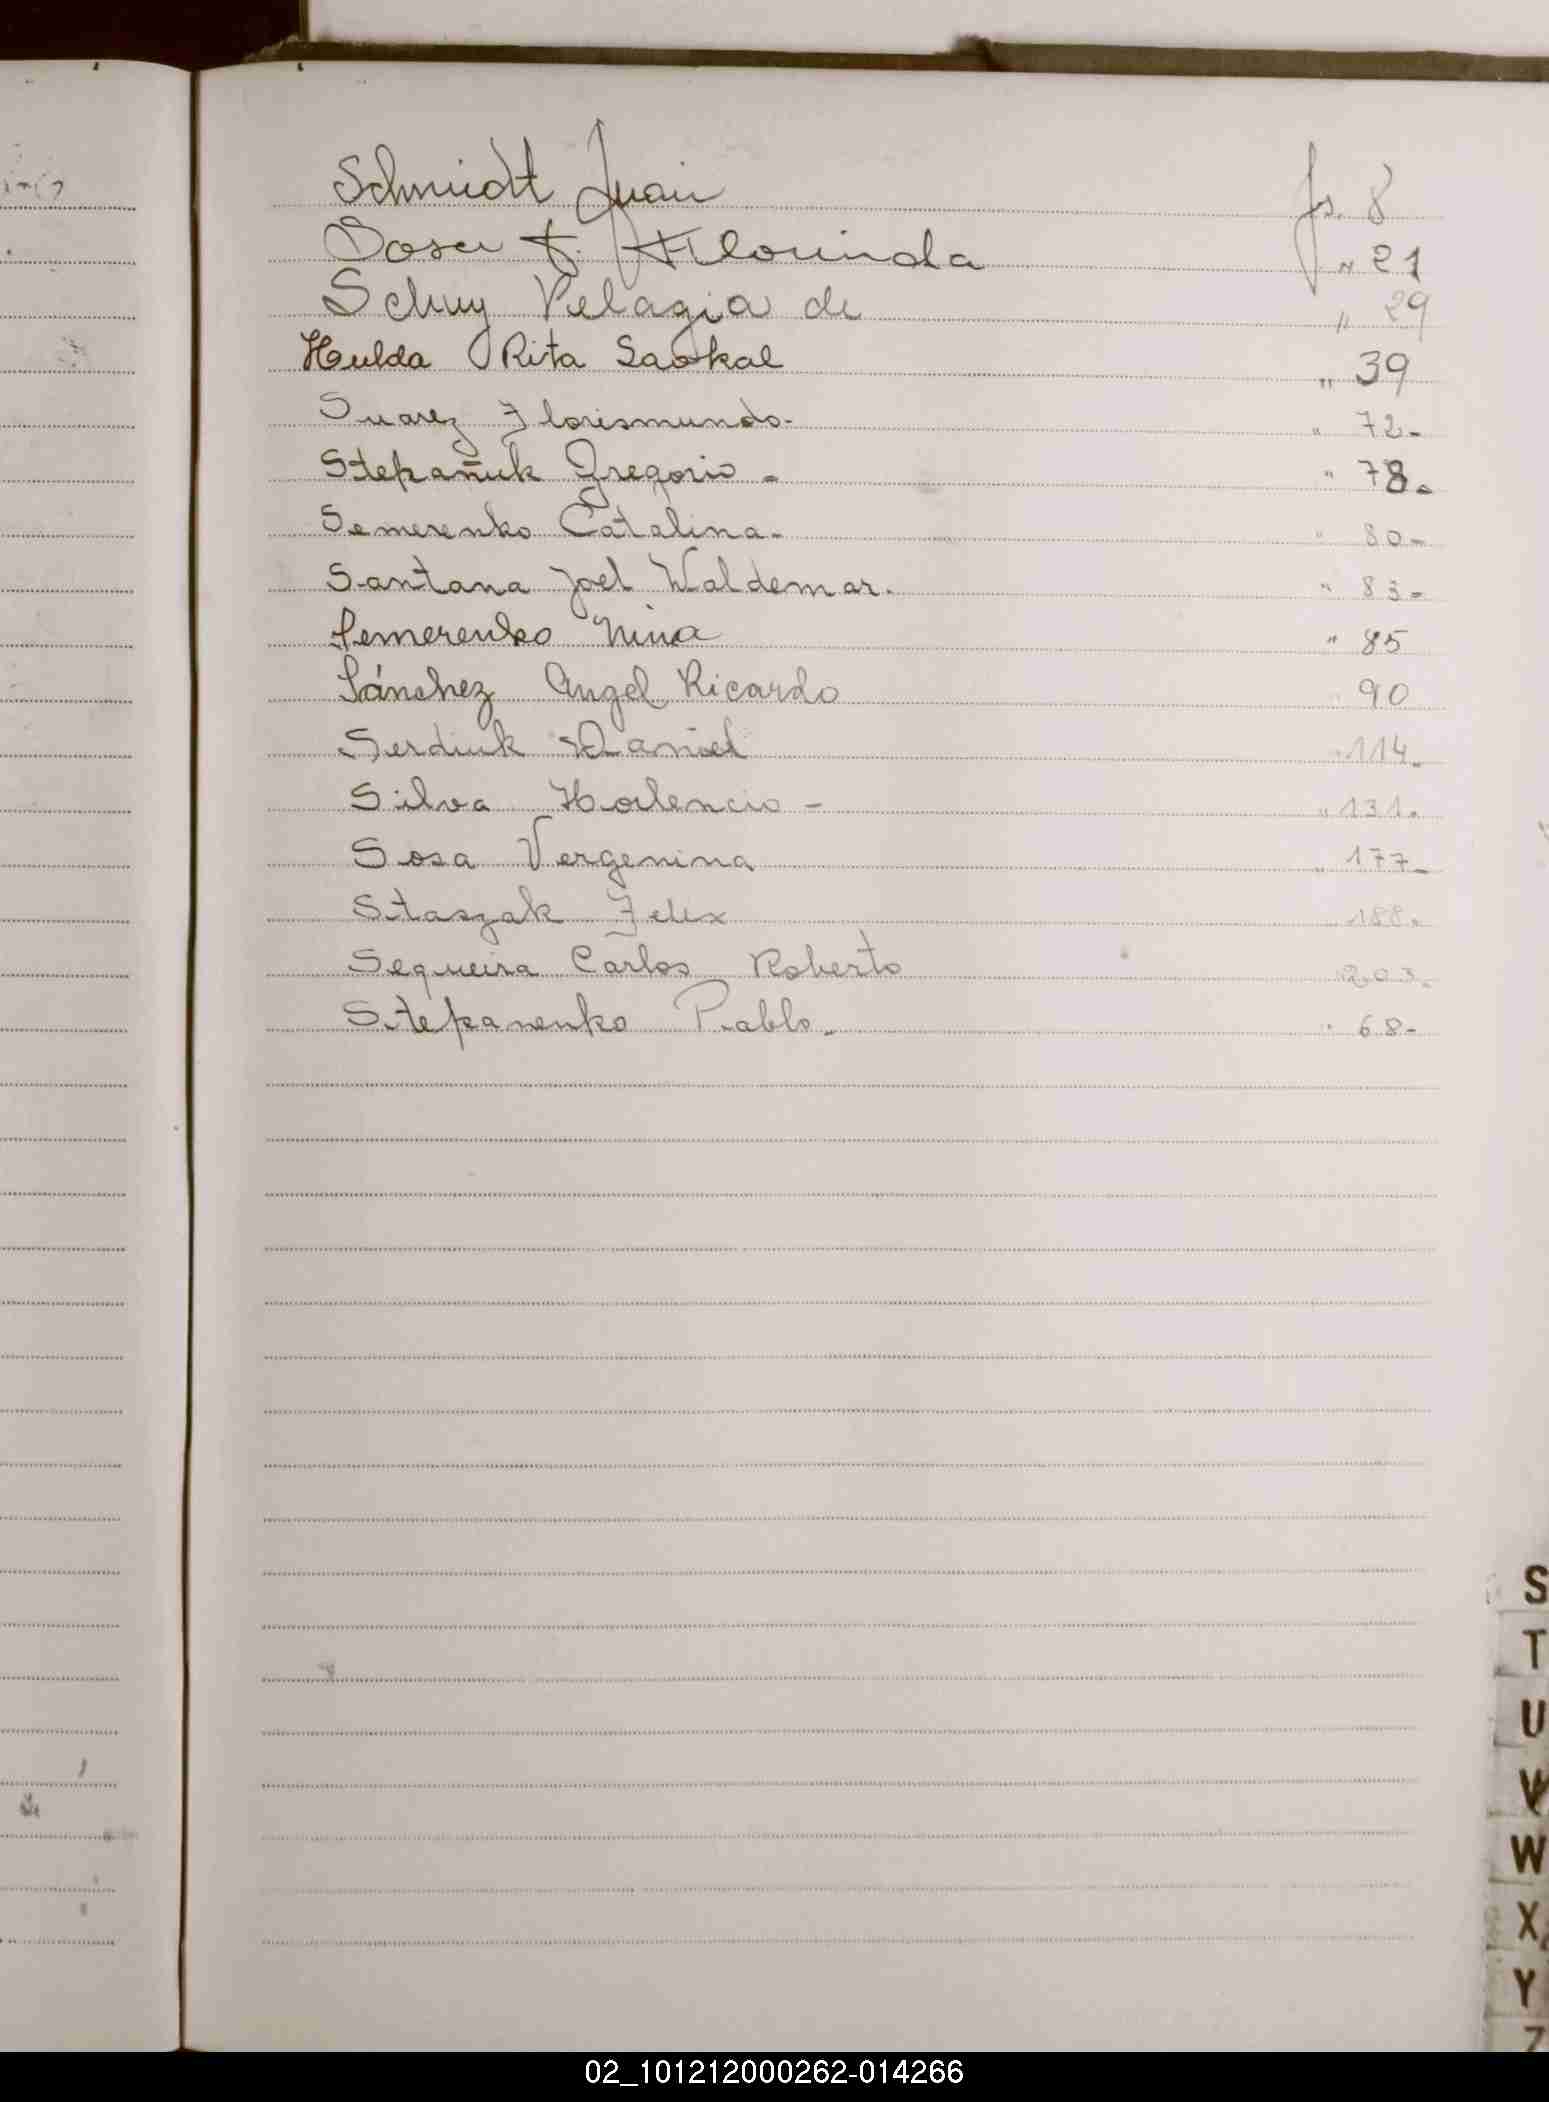 Schmidt Juan fs. 8
Sosa F. Florinda " 21
Schuy Pelagia de " 29
Hulda Rita Saokal " 39
Suarez Florismundo- " 72-
Stepañuk Gregorio - " 78-
Semerenko Catalina- " 80-
Santana Joel Waldemar. " 83-
Semerenko Nina " 85
Sánchez Angel Ricardo 90
Serdiuk Daniel " 114-
Silva Horlencio - " 131-
Sosa Vergenina " 177-
Staszak Felix " 188-
Sequeira Carlos Roberto 203-
Stepanenko Pablo- " 68-
S
T
U
V
W
X
Y
Z
02_101212000262-014266